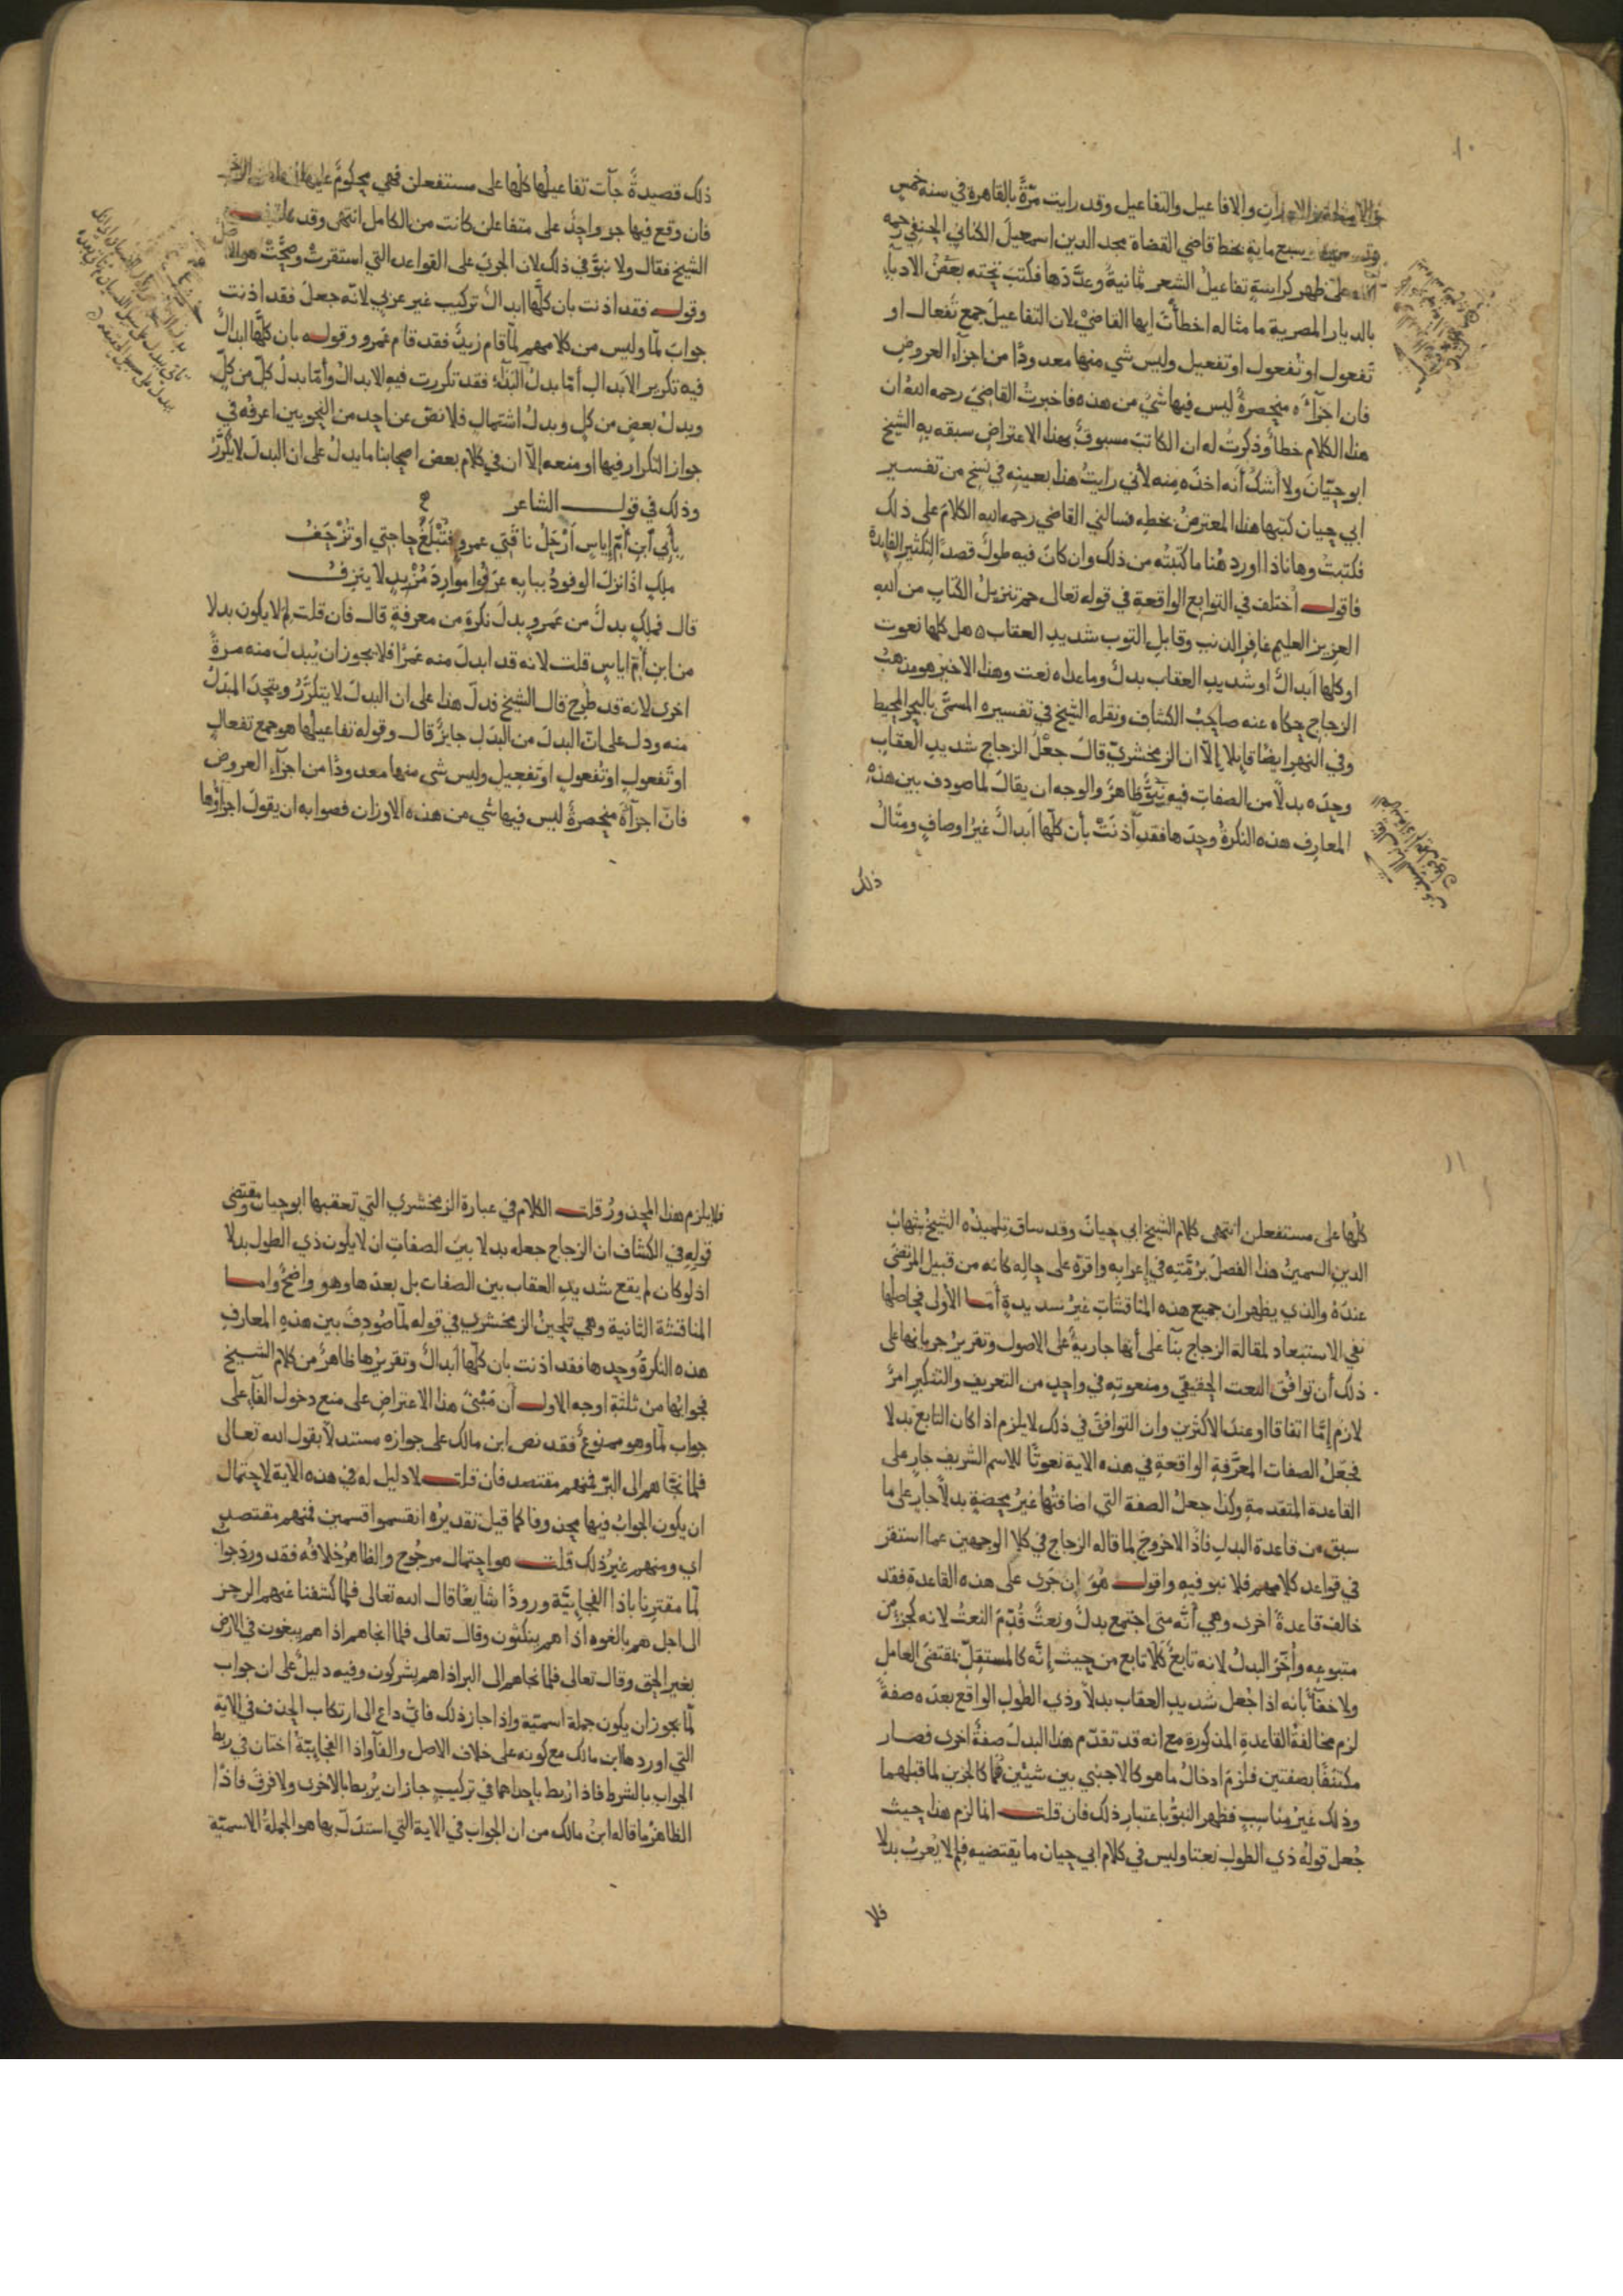 ١٠
والاوزان والافاعيل والتفاعيل وقد رايت مرّةً بالقاهرة في سنه خمس
وسبع ماية بخط قاضي القضاة مجد الدين اسمعيل الكناني الحنفي رحمه
الله على ظهر كراسةٍ تفاعيلُ الشعر ثمانيةٌ وعدَّدَها فكتبَ تحته بعضُ الادباء
بالديار المصرية ما مثاله اخطأتَ ايها القاضيْ لان التفاعيلَ جمع تَفعال او
تَفعول او تُفعول او تفعيل وليس شي منها معدودًا من اجزآء العروض
فان اجزآءَه منحصرةٌ ليس فيها شيٌ من هذه فاخبرتُ القاضيَ رحمه الله ان
هذا الكلام خطأٌ وذكرتُ له ان الكاتبَ مسبوقٌ بهذا الاعتراض سبقه به الشيخ
ابو حيّانَ ولا أشكُّ أنه اخذَه منه لأني رايتُ هذا بعينِه في نسخٍ من تفسير
ابي حيان كتبها هذا المعترضُ بخطِه فسالني القاضي رحمه الله الكلامَ على ذلك
فكتبتُ وها نا ذا اوردِ هُنا ما كتبتُه من ذلك وان كانَ فيه طولٌ قصداً لتكثير الفايدة
فاقول اُختلف في التوابع الواقعةِ في قوله تعالى حم تنزيلُ الكتابِ من الله
العزيز العليم غافرِ الذنب وقابلِ التوب شديدِ العقاب ه هل كلها نعوت
او كلها ابدالٌ او شديدِ العقاب بدلٌ وما عداه نعت وهذا الاخيرُ هو مذهبُ
الزجاج حكاه عنه صاحبُ الكشاف ونقله الشيخ في تفسيره المسمَّى بالبحر المحيط
وفي النهر ايضًا قايلا إلّا ان الزمخشريّ قالَ جعْلُ الزجاج شديدِ العقابِ
وحدَه بدلًا من الصفاتِ فيه نَبْوٌ ظاهرٌ والوجه ان يقالَ لما صودف بين هذه
المعارِف هذه النكرةُ وحدَها فقد آذنَتْ بأن كلّها ابدالٌ غيرُ اوصافٍ ومثالُ
ذلك
ذلك قصيدةٌ جآت تفاعيلُها كلُّها على مستفعلن فهي محكومٌ عليها
فان وقع فيها جز واحدٌ على متفاعلن كانت من الكامل انتهى وقد
الشيخ فقال ولا نبوَّ في ذلك لان الجريَ على القواعد التي استقرتْ وصحَّتْ هو الا
وقوله فقد اذنت بان كلَّها ابدالٌ تركيب غير عربي لانه جعلَ فقد اذنت
جوابَ لمّا وليس من كلامهم لمّا قام زيدٌ فقد قام عمرو وقوله بان كلَّها ابدالٌ
فيه تكرير الابدال أمّا بدلُ البَدَآء فقد تكررت فيه الابدالُ وأمّا بدلُ كلٍّ من كلٍّ
وبدلُ بعضٍ من كلٍ وبدلُ اشتمالٍ فلا نصَّ عن احدٍ من النحويين اعرفُه في
جواز التكرار فيها او منعه إلّا ان في كلام بعض اصحابنا ما يدلُ على ان البدلَ لا يكرَّرُ
وذلك في قول الشاعر
بأبي ابنِ أُمِّ إياسٍ اَرْحَلُ ناقتي عمروٍ فتُبْلَغُ حاجتي او تُزْحَفُ
ملكٍ اذا نزلَ الوفودُ ببابه عرَفُوا موارِدَ مُزْبِدٍ لا ينزفُ
قال فملكٍ بدلٌ من عَمروٍ بدلَ نكرةٍ من معرفةٍ قال فان قلت لِمَ لا يكون بدلا
من ابنِ اُمّ اياسٍ قلت لانه قد ابدلَ منه عَمرًا فلا يجوز ان يُبدلَ منه مرةً
اخرى لانه قد طُرح قال الشيخ فدلّ هذا على ان البدلَ لا يتكرَّرُ ويتحدُ المبدلُ
منه ودل على انّ البدلَ من البدلِ جايزٌ قال وقوله تفاعيلُها هو جمع تفعالٍ
او تَفعول او تُفعول او تَفعيلٍ وليس شي منها معدودًا من اجزآء العروض
فانّ اجزآءَه منحصرةٌ ليس فيها شي من هذه الاوزان فصوابه ان يقولَ اجزاؤها
١١
كلُها على مستفعلن انتهى كلامُ الشيخ ابي حيانَ وقد ساق تلميذُه الشيخُ شهابُ
الدين السمينُ هذا الفصلَ برُمَّتِه في إعرابه واقرَّه على حالِه كانه من قبيلِ المرتضى
عندَه والذي يظهر ان جميع هذه المناقشات غيرُ سديدةٍ أمّا الأولى فحاصلُها
نفي الاستبعاد لمقالة الزجاج بنآءً على أنها جاريةٌ على الاصول وتقريرُ جريانها على
ذلك أن توافقَ النعت الحقيقي ومنعوتِه في واحدٍ من التعريف والتنكيرِ امرٌ
لازم إمّا اتفاقا او عندَ الاكثرينِ وان التوافقَ في ذلك لا يلزم اذا كان التابع بدلا
فجَعْلُ الصفات المعرَّفةِ الواقعةِ في هذه الاية نعوتًا للاسم الشريف جارٍ على
القاعدة المتقدمةِ وكذا جعلُ الصفة التي اضافتُها غيرُ محضةٍ بدلًا جارٍ على ما
سبق من قاعدة البدلِ فاذًا لا خروجَ لما قاله الزجاج في كلا الوجهين عما استقر
في قواعد كلامهم فلا نبو فيهِ واقول هُوَ إن جَرى على هذه القاعدة فقد
خالف قاعدةً اخرى وهي أنَّه متى اجتمع بدلٌ ونعتٌ قُدِّمَ النعتُ لانه كجزءٍ من
متبوعه وأُخِّرَ البدلُ لانه تابعٌ كَلَا تابعٍ من حيث إنَّه كالمستقِلّ بمقتضَى العامل
ولا خفآءَ بانه اذا جُعلَ شديدِ العقاب بدلًا وذي الطَّولِ الواقع بعدَه صفةً
لزم مخالفةُ القاعدةِ المذكورة مع انه قد تقدّم هذا البدلَ صفةٌ اخرى فصار
مكتنَفًا بصفتين فلزمَ ادخالُ ما هو كالاجنبي بين شيئينِ هُما كالجزين لما قبلهما
وذلك غيرُ مناسبٍ فظهر النبوُّ باعتبارِ ذلك فان قلت انما لزم هذا حيث
جُعل قولُه ذي الطولِ نعتا وليس في كلام ابي حيان ما يقتضيه فلِمَ لا يُعربُ بدلا
فلا
فلا يلزم هذا المحذورُ قلت الكلام في عبارة الزمخشري التي تعقبها ابو حيان ومقتضى
قولِه في الكشاف ان الزجاج جعله بدلا بينَ الصفاتِ ان لا يكون ذي الطول بدلا
اذ لو كان لم يقع شديدِ العقاب بين الصفات بل بعدَها وهو واضحٌ واما
المناقشة الثانية وهي تلحينُ الزمخشري في قوله لمّا صُودِفَ بين هذه المعارف
هذه النكرةُ وحدها فقد اذنت بان كلَّها ابدالٌ وتقريرُها ظاهرٌ من كلام الشيخ
فجوابُها من ثلثةِ اوجه الاول أن مَبْنَى هذا الاعتراضِ على منع دخول الفآءِ على
جواب لمّا وهو ممنوعٌ فقد نص ابن مالك على جوازه مستدلًا بقول الله تعالى
فلما نجَّاهم الى البرّ فمنهم مقتصد فان قلت لا دليل له في هذه الاية لاحتمال
ان يكون الجوابُ فيها محذوفا كما قيل تقديرُه انقسموا قسمين فمنهم مقتصدٍ
اي ومنهم غيرُ ذلك قلت هو احتمال مرجُوح والظاهرُ خلافُه فقد وردَ جوابُ
لمّا مقترِنا باذا الفجآيِيَّة ورودًا شايعًا قال الله تعالى فلما كشفنا عنهم الرجز
الى اجل هم بالغوه اذا هم ينكثون وقال تعالى فلما انجاهم اذا هم يبغون في الارض
بغير الحق وقال تعالى فلما نجاهم الى البر اذا هم يشركون وفيه دليلٌ على ان جواب
لمّا يجوز ان يكون جملةً اسميّة واذا جاز ذلك فايُّ داعٍ الى ارتكاب الحذف في الاية
التي اوردها ابن مالك مع كونه على خلاف الاصل والفآ واذا الفجآييّة اختان في ربط
الجواب بالشرط فاذا رُبط باحداهما في تركيبٍ جاز ان يُربط بالاخرى ولا فرقَ فاذًا
الظاهرُ ما قاله ابنُ مالك من ان الجوابَ في الاية التي استدَلَّ بها هو الجملةُ الاسميّة